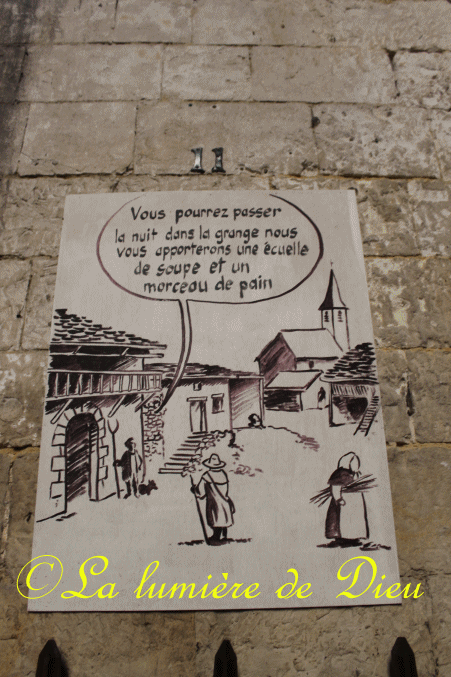 11
Vous pourrez passer
la nuit dans la grange nous
vous apporterons une écuelle
de soupe et un
morceau de pain
©La lumière de Dieu